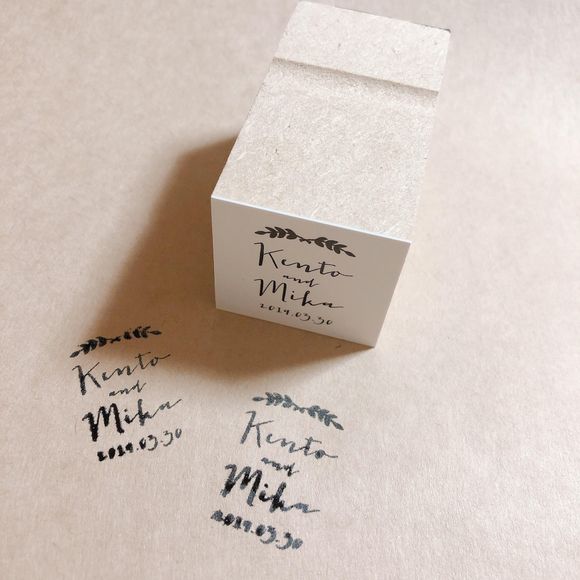 Kento
and
Mika
2019.03.30
Kento
and
Mika
2019.03.30
Kento
and
Mika
2019.03.30